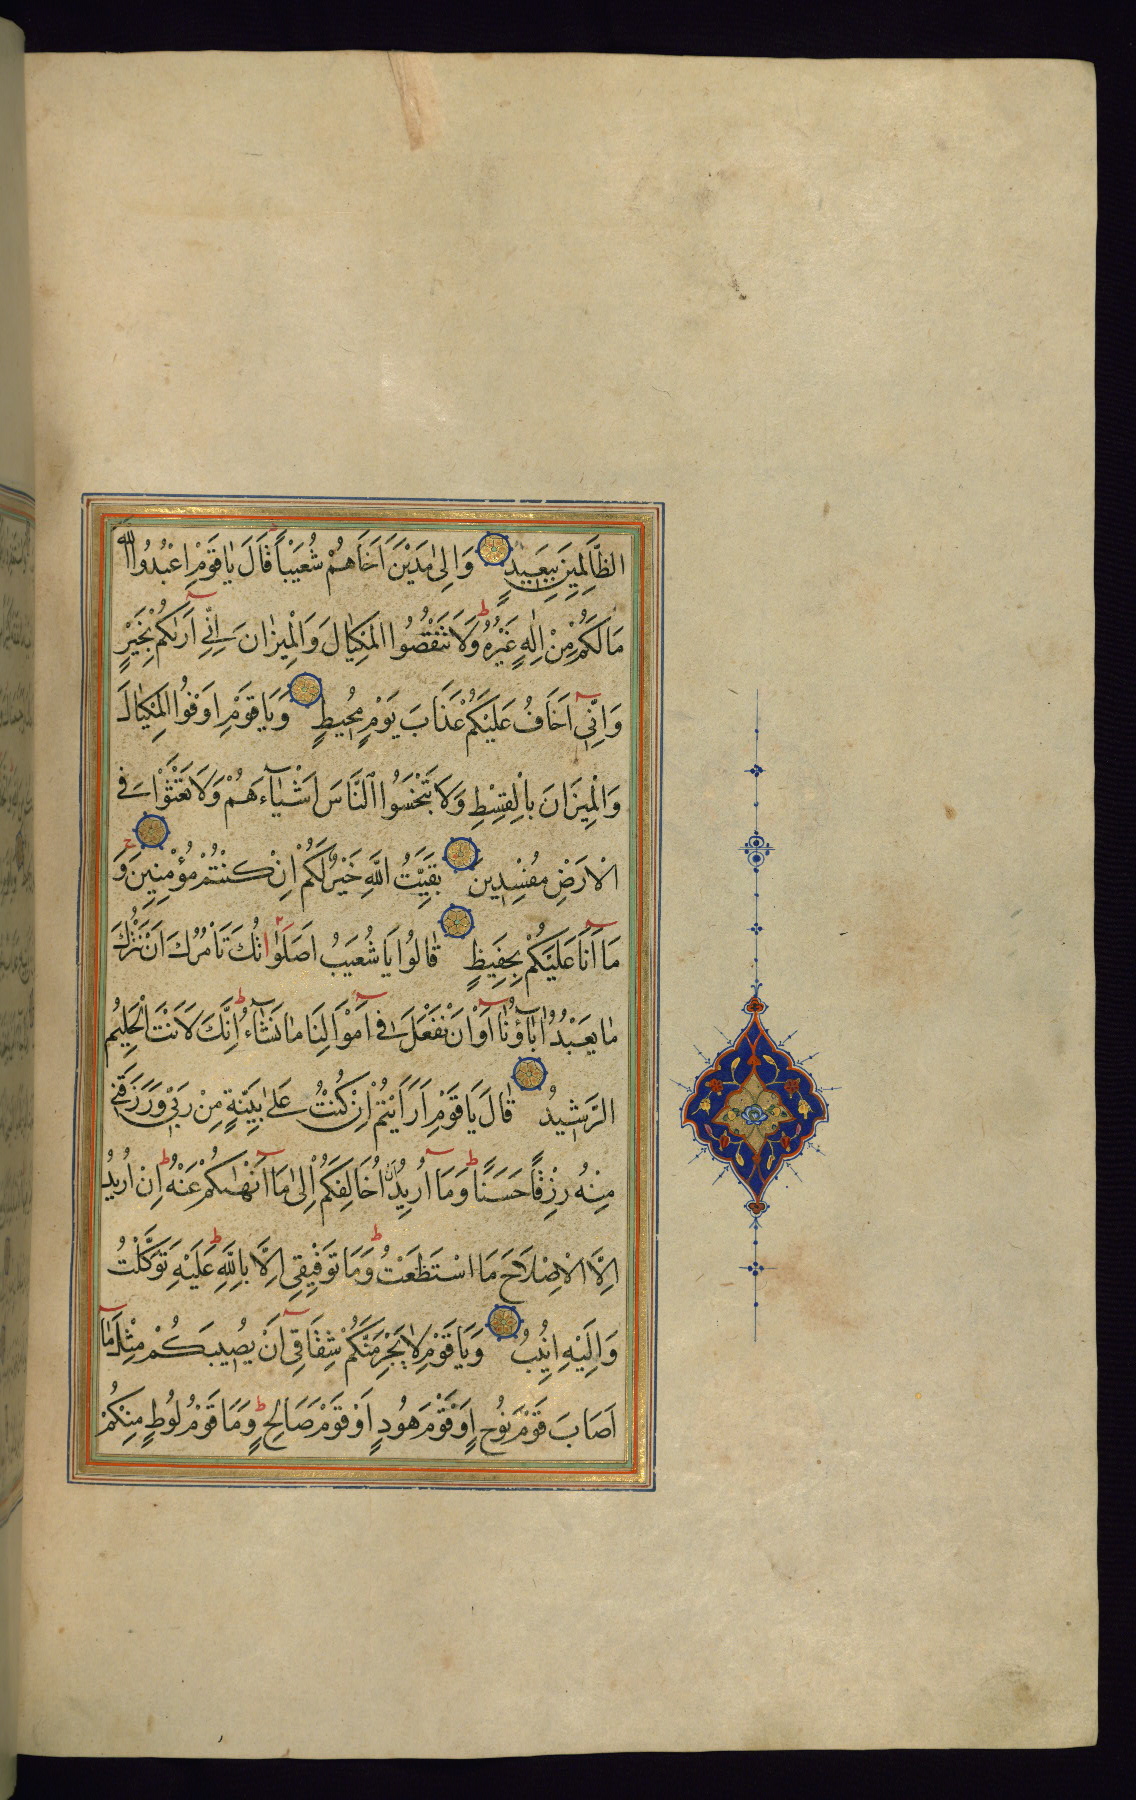 الظَّالِمِينَ بِبَعِيدٍ وَاِلىٰ مَدْيَنَ اَخَاهُمْ شُعَيْبًا قَالَ يَا قَوْمِ اعْبُدُوا اللّٰهَ
مَالَكُمْ مِنْ اِلٰهٍ غَيْرُهُ وَلَا تَنْقُصُوا الْمِكْيَالَ وَالْمِيزَانَ اِنِّي اَرٰىكُمْ بِخَيْرٍ
وَاِنِّي اَخَافُ عَلَيْكُمْ عَذَابَ يَوْمٍ مُحِيطٍ وَيَا قَوْمِ اَوْفُوا الْمِكْيَالَ
وَالْمِيزَانَ بِالْقِسْطِ وَلَا تَبْخَسُوا النَّاسَ اَشْيَآءَهُمْ وَلَا تَعْثَوْا فِي
الْاَرْضِ مُفْسِدِينَ بَقِيَّتُ اللّٰهِ خَيْرٌ لَكُمْ اِنْ كُنْتُمْ مُؤْمِنِينَ وَ
مَآ اَنَا عَلَيْكُمْ بِحَفِيظٍ قَالُوا يَا شُعَيْبُ اَصَلَوَاتُكَ تَأْمُرُكَ اَنْ نَتْرُكَ
مَا يَعْبُدُ اٰبَآؤُنَآ اَوْ اَنْ نَفْعَلَ فِي اَمْوَالِنَا مَا نَشَآءُ اِنَّكَ لَاَنْتَ الْحَلِيمُ
الرَّشِيدُ قَالَ يَا قَوْمِ اَرَاَيْتُمْ اِنْ كُنْتُ عَلىٰ بَيِّنَةٍ مِنْ رَبِّي وَرَزَقَنِي
مِنْهُ رِزْقًا حَسَنًا وَمَآ اُرِيدُ اَنْ اُخَالِفَكُمْ اِلىٰ مَآ اَنْهٰىكُمْ عَنْهُ اِنْ اُرِيدُ
اِلَّا الْاِصْلَاحَ مَا اسْتَطَعْتُ وَمَا تَوْفِيقِي اِلَّا بِاللّٰهِ عَلَيْهِ تَوَكَّلْتُ
وَاِلَيْهِ اُنِيبُ وَيَا قَوْمِ لَا يَجْرِمَنَّكُمْ شِقَاقِي اَنْ يُصِيبَكُمْ مِثْلُ مَآ
اَصَابَ قَوْمَ نُوحٍ اَوْ قَوْمَ هُودٍ اَوْ قَوْمَ صَالِحٍ وَمَا قَوْمُ لُوطٍ مِنْكُمْ